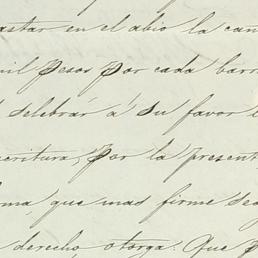 astar en el abio la can
mil Pesos por cada barr
selebrar á su favor l
scritura, por la present
rma, que mas firme sea
derecho, otorga: Que p